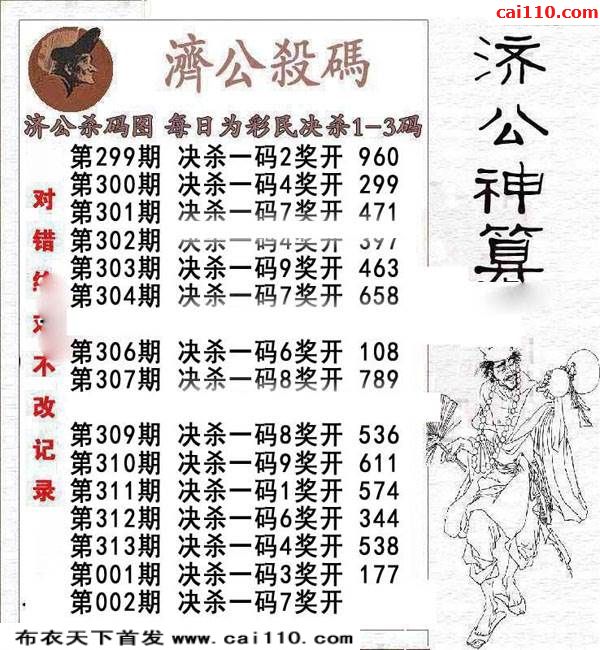 cai110.com
濟公殺碼
济公神算
济公杀码图 每日为彩民决杀1-3码
对错 不改记录
第299期 决杀一码2奖开 960
第300期 决杀一码4奖开 299
第301期 决杀一码7奖开 471
第302期 决杀一码4奖开 397
第303期 决杀一码9奖开 463
第304期 决杀一码7奖开 658
第306期 决杀一码6奖开 108
第307期 决杀一码8奖开 789
第309期 决杀一码8奖开 536
第310期 决杀一码9奖开 611
第311期 决杀一码1奖开 574
第312期 决杀一码6奖开 344
第313期 决杀一码4奖开 538
第001期 决杀一码3奖开 177
第002期 决杀一码7奖开
布衣天下首发 www.cai110.com